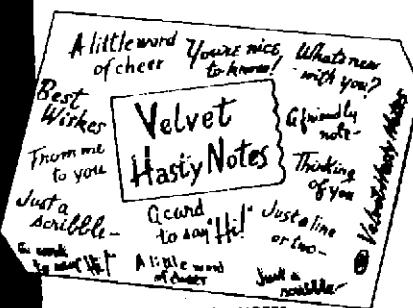 A little word
of cheer
You're nice
to know!
What's new
with you?
Best
Wishes
Velvet
Hasty Notes
A friendly
note-
From me
to you
Thinking
of you
Just a
scribble-
A card
to say "Hi!"
Just a line
or two-
Velvet Hasty Notes
A card
to say "Hi!"
A little word
of cheer
Just a
scribble-